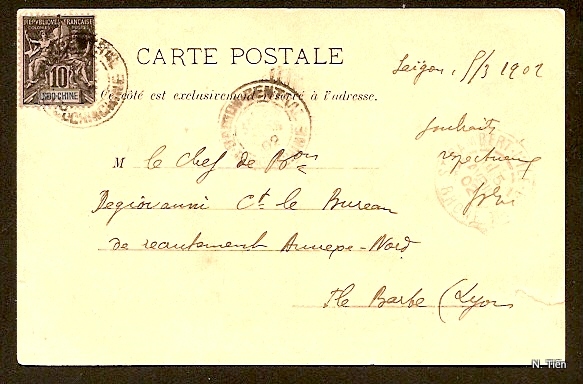 RÉPUBLIQUE FRANÇAISE
COLONIES POSTES
10
INDO-CHINE
CARTE POSTALE
Ce côté est exclusivement réservé à l'adresse.
Saigon, 5/3 1902
souhaits
respectueux
M le Chef de Bon
Degiovanni Ct le Bureau
de recrutement Annexe-Nord
Ile Barbe (Lyon
N. Tien